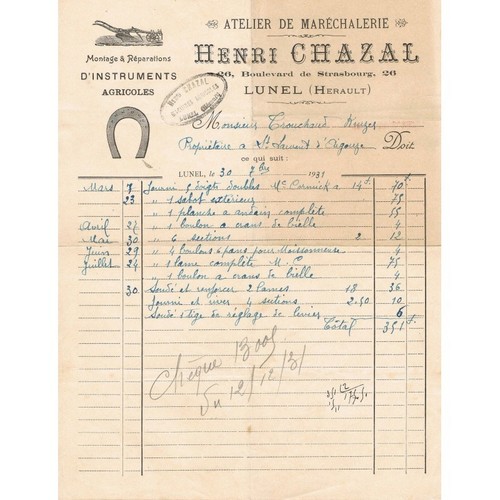 ATELIER DE MARÉCHALERIE
HENRI CHAZAL
26, Boulevard de Strasbourg, 26
LUNEL (HERAULT)
Montage & Réparations
D'INSTRUMENTS
AGRICOLES
HENRI CHAZAL
Monsieur Trouchaud
Propriétaire à St Laurent d'Aigouze Doit
ce qui suit :
LUNEL, le 30 7bre 1931
Mars 7 Fourni 5 doigts doubles Mc Cormick à 14f. 70f.
23 " 1 sabot extérieur 75
" 1 planche à andain complète 55
Avril 27 " 1 boulon a crans de bielle 4
Mai 30 " 6 sections 2. 12
Juin 29 " 4 boulons 6 pans pour Moissonneuse 4
Juillet 24 " 1 lame complète M.C 75
" 1 boulon a crans de bielle 4
30 Soudé et renforcer 2 lames 18 36
Fourni et river 4 sections 2.50 10
Soudé 1 tige de réglage de levier 6
Total 351f.
Chèque
du 12/12/31